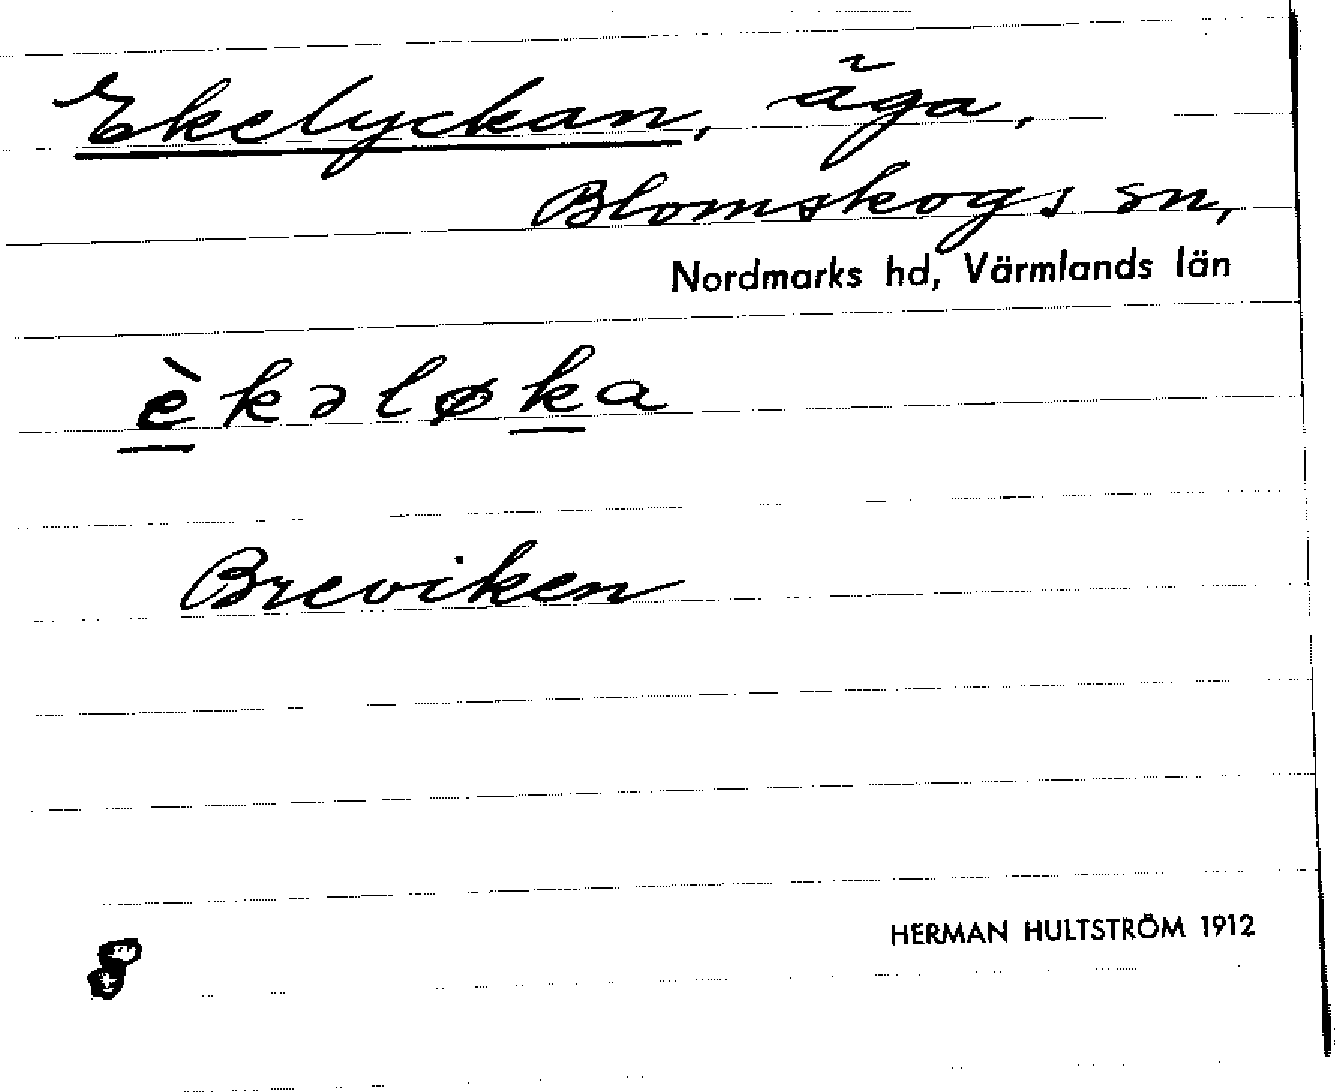 Ekelyckan, äga,
Blomskogs sn,
Nordmarks hd, Värmlands län
èkəløka
Breviken
HERMAN HULTSTRÖM 1912